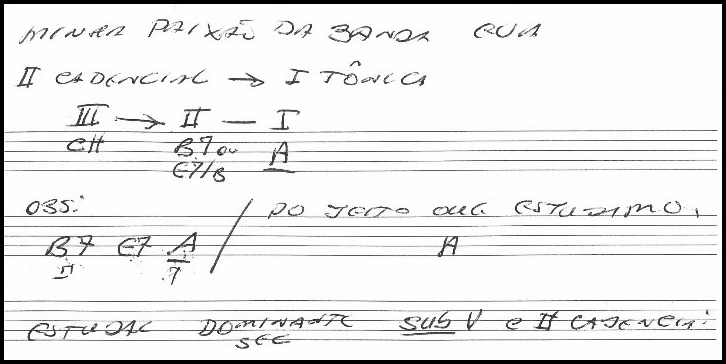 MINHA PAIXÃO DA BANDA EVA
II CADENCIAL → I TÔNICA
III → II — I
C# B7 ou A
E7/B
OBS: / DO JEITO QUE ESTUDAMOS,
B7 E7 A A
II I
ESTUDAR DOMINANTE SUB V e II CADENCIAL
SEC